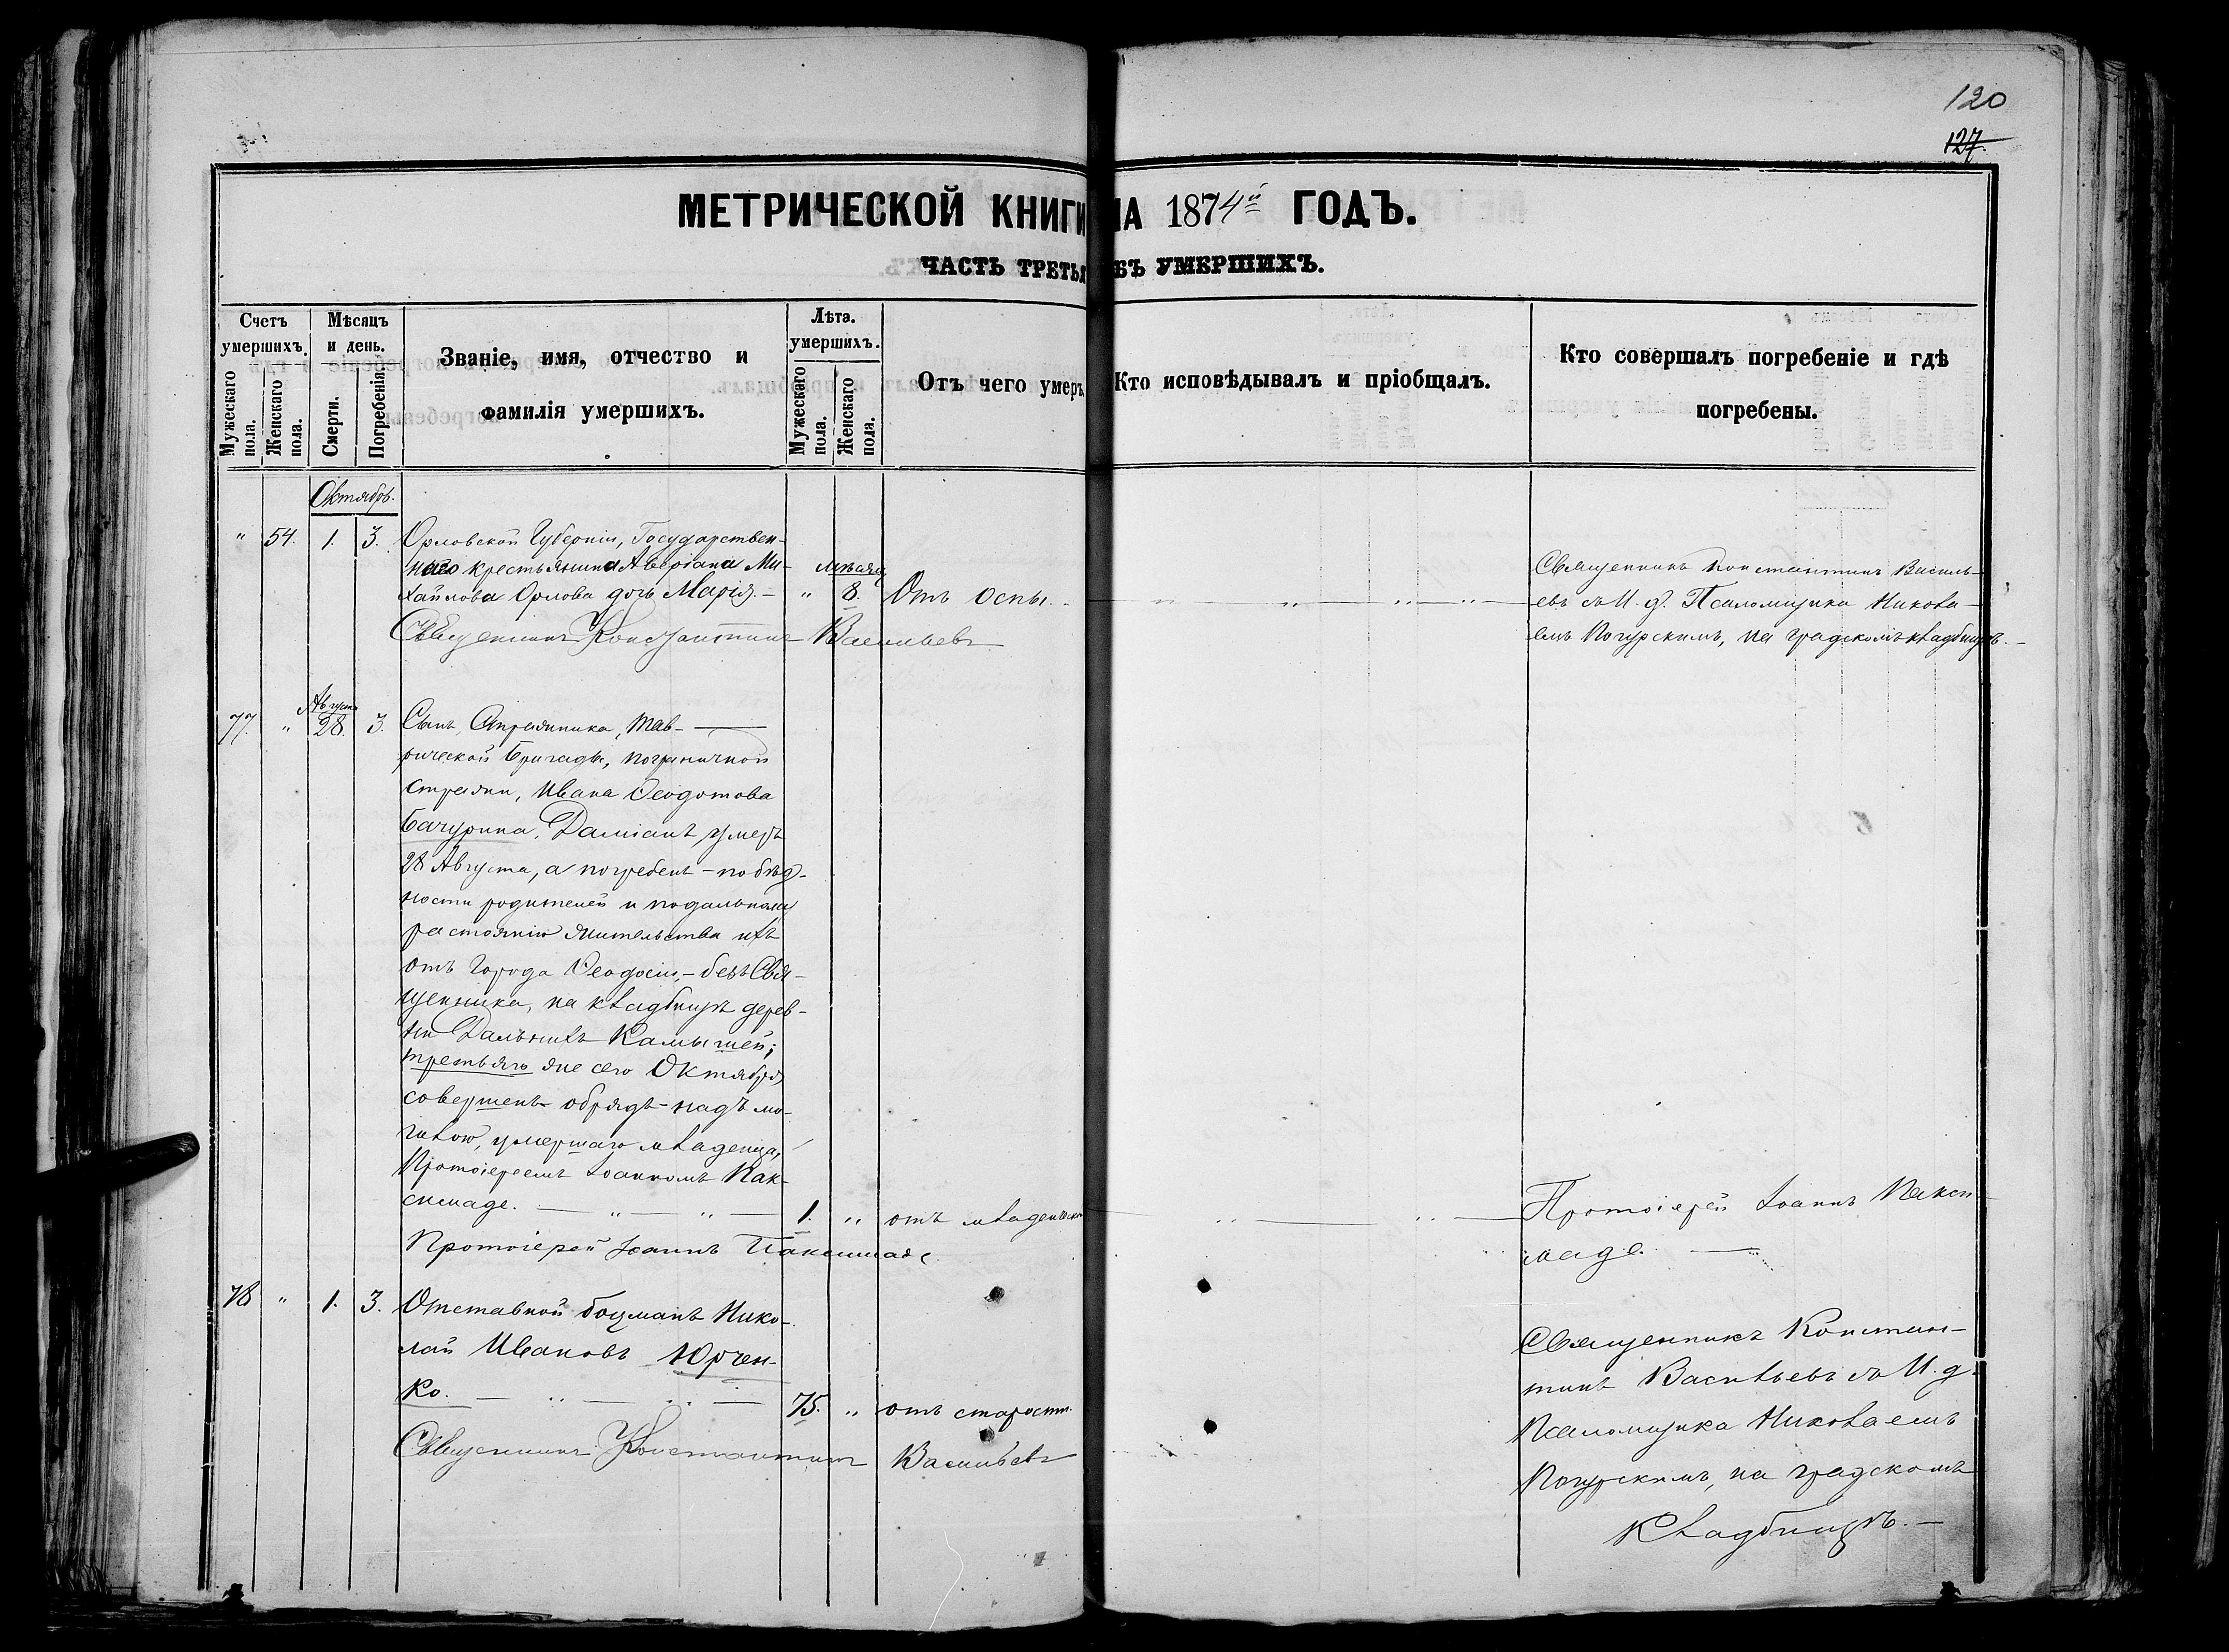 120
127.
МЕТРИЧЕСКОЙ КНИГИ НА 1874й ГОДЪ.
ЧАСТЬ ТРЕТЬЯ ОБЪ УМЕРШИХЪ.
Счетъ умершихъ.
Мужескаго пола.
Женскаго пола.
Мѣсяцъ и день.
Смерти.
Погребенія.
Званіе, имя, отчество и
фамилія умершихъ.
Лѣта умершихъ.
Мужескаго пола.
Женскаго пола.
Отъ чего умеръ.
Кто исповѣдывалъ и пріобщалъ.
Кто совершалъ погребеніе и гдѣ
погребены.
Октябрь.
" 54. 1. 3. Орловской Губерніи, Государствен-
наго крестьянина Аверіана Ми-
хайлова Орлова дочь Марія. — " мѣсяц 8. Отъ оспы.
Священникъ Константинъ Васильевъ
Священникъ Константинъ Василь-
евъ съ И. д. Псаломщика Никола-
емъ Погурскимъ, на градскомъ кладбищѣ. —
77. " Август 28. 3. Сынъ Стражника, Тав-
рической Бригады, пограничной
стражи, Ивана Ѳеодотова
Бачурина, Даміанъ, умеръ
28 Августа, а погребенъ — по бѣд-
ности родителей и по дальнему
растоянію жительства ихъ
отъ Города Ѳеодосіи, — безъ Свя-
щенника, на кладбищѣ дерев-
ни Дальнихъ Камышей;
третьяго же сего Октября
совершенъ обрядъ надъ мо-
гилою, умершаго младенца,
Протоіереемъ Іоанномъ Пак-
симаде. — " — " — 1. " отъ младенческ
Протоіерей Іоаннъ Паксимаде.
Протоіерей Іоаннъ Пакси-
маде. —
78 " 1. 3. Отставной боцманъ Нико-
лай Ивановъ Юрчен-
ко. — " — " — 75. " отъ старости.
Священникъ Константинъ Васильевъ
Священникъ Констан-
тинъ Васильевъ съ И. д.
Псаломщика Николаемъ
Погурскимъ, на градскомъ
кладбищѣ. —